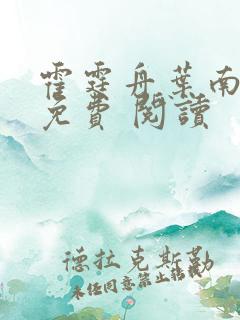 霍霆舟葉南
免費閱讀
德拉克斯勒
未经同意禁止转载